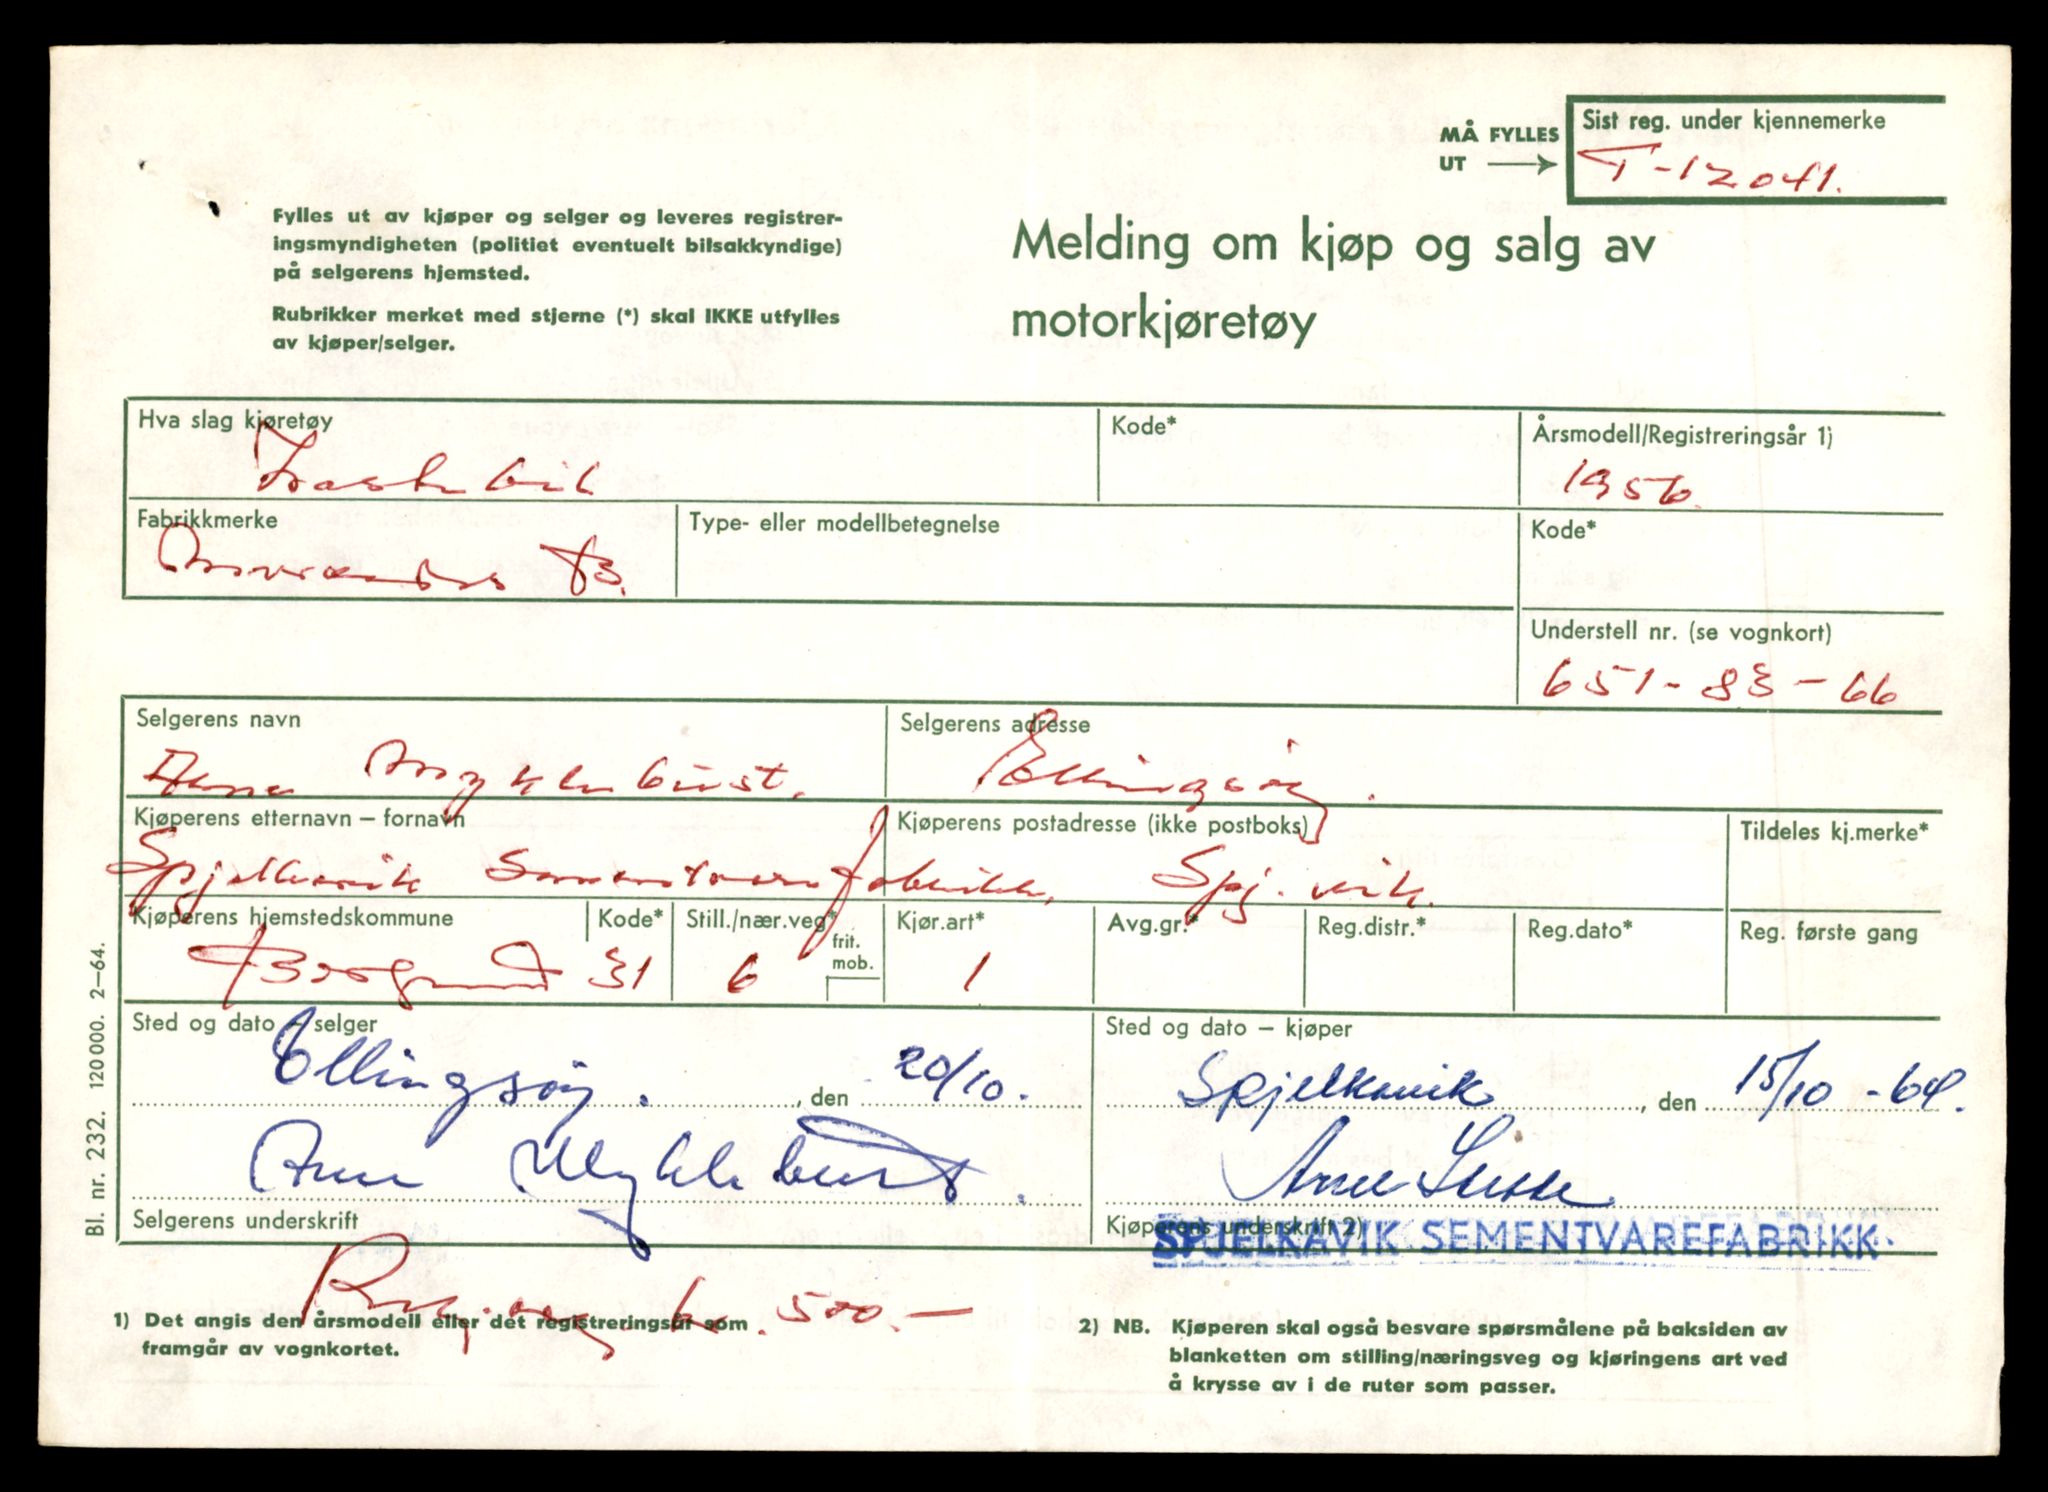 MÅ FYLLES UT
Sist reg. under kjennemerke
T-12041.
Fylles ut av kjøper og selger og leveres registrer-
ingsmyndigheten (politiet eventuelt bilsakkyndige)
på selgerens hjemsted.
Rubrikker merket med stjerne (*) skal IKKE utfylles
av kjøper/selger.
Melding om kjøp og salg av
motorkjøretøy
Hva slag kjøretøy
Lastebil
Kode*
Årsmodell/Registreringsår 1)
1956.
Fabrikkmerke
Mercedes B.
Type- eller modellbetegnelse
Kode*
Understell nr. (se vognkort)
651-83-66
Selgerens navn
Arne Myklebust.
Selgerens adresse
Ellingsøy.
Kjøperens etternavn – fornavn
Spjelkavik Sementvarefabrikk,
Kjøperens postadresse (ikke postboks)
Spj.vik.
Tildeles kj.merke*
Kjøperens hjemstedskommune
Borgund
Kode*
31
Still./nær.veg*
6
frit.
mob.
Kjør.art*
1
Avg.gr.*
Reg.distr.*
Reg.dato*
Reg. første gang
Sted og dato – selger
Ellingsøy. , den 20/10.
Arne Myklebust.
Selgerens underskrift
Sted og dato – kjøper
Spjelkavik , den 15/10 -64.
Arne
Kjøperens underskrift 2)
SPJELKAVIK SEMENTVAREFABRIKK
kr. 500.-
1) Det angis den årsmodell eller det registreringsår som
framgår av vognkortet.
2) NB. Kjøperen skal også besvare spørsmålene på baksiden av
blanketten om stilling/næringsveg og kjøringens art ved
å krysse av i de ruter som passer.
Bl. nr. 232. 120 000. 2–64.